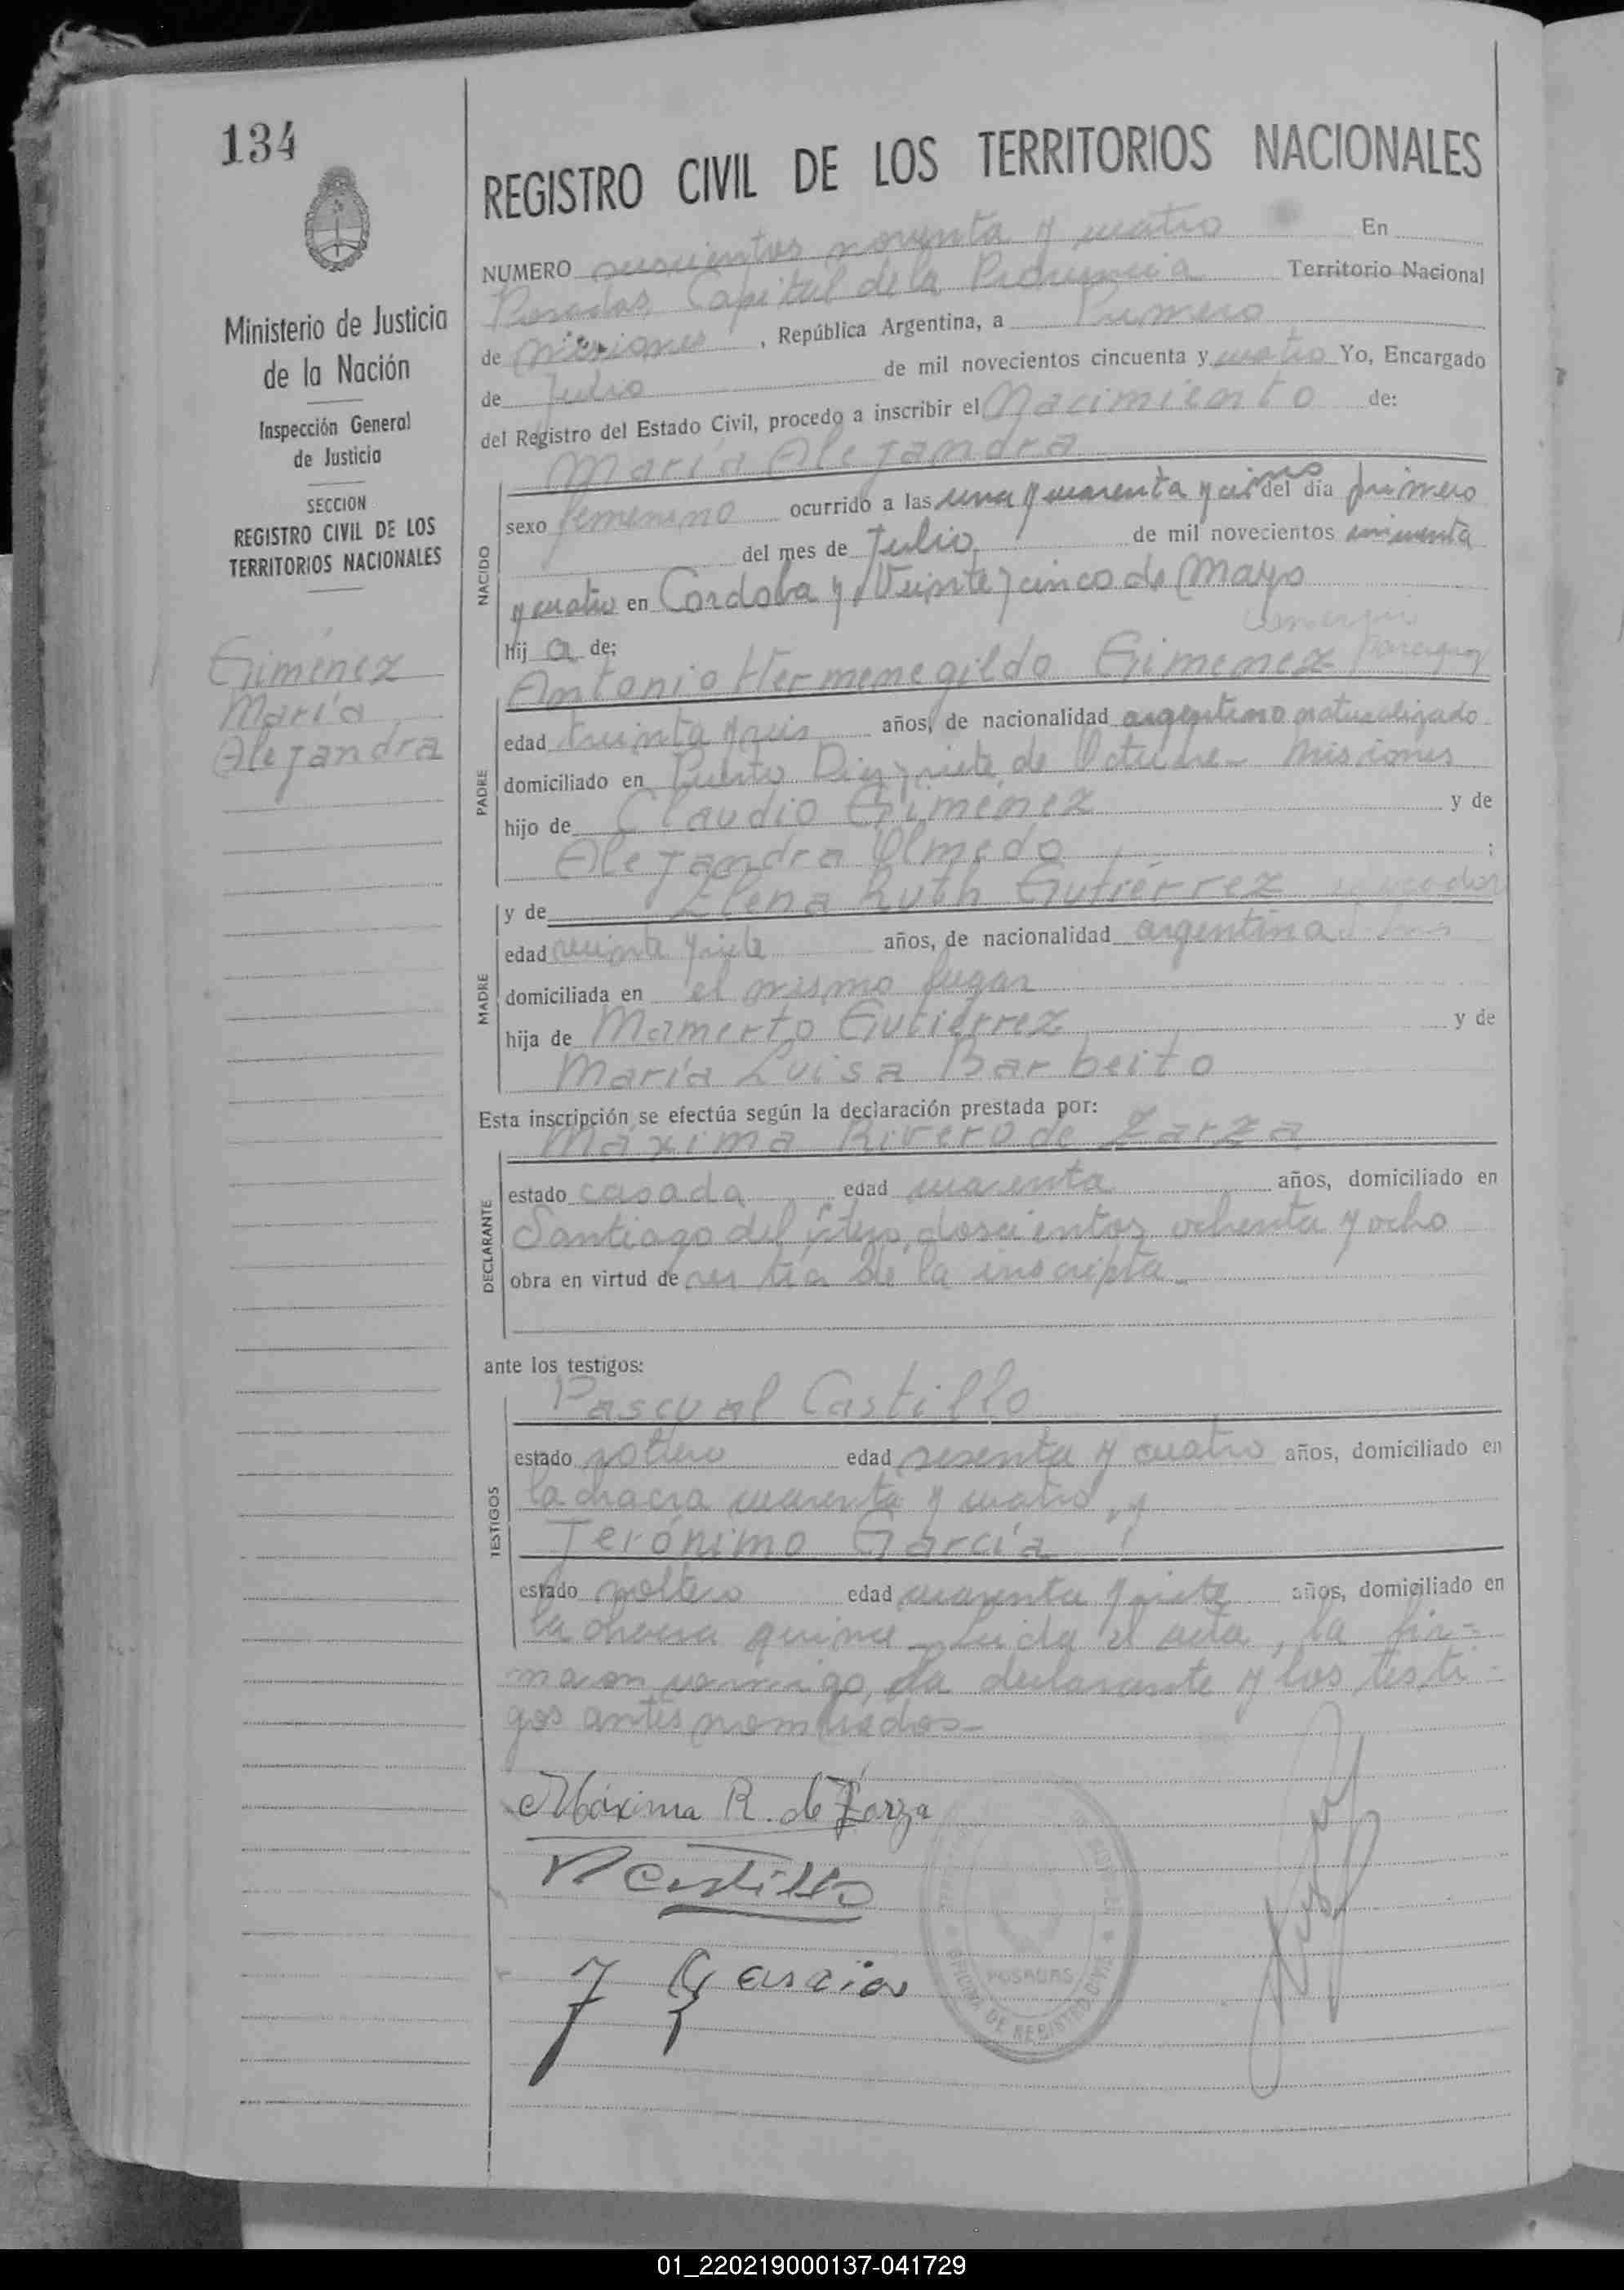 134
REGISTRO CIVIL DE LOS TERRITORIOS NACIONALES
NUMERO noventa y cuatro En
Posadas, Capital de la Provincia Territorio Nacional
de Misiones, República Argentina, a Primero
de Julio de mil novecientos cincuenta y cuatro Yo, Encargado
del Registro del Estado Civil, procedo a inscribir el Nacimiento de:
María Alejandra
Ministerio de Justicia
de la Nación
Inspección General
de Justicia
SECCION
REGISTRO CIVIL DE LOS
TERRITORIOS NACIONALES
Giménez
María
Alejandra
NACIDO
sexo femenino ocurrido a las una y cuarenta y cinco del día primero
del mes de Julio de mil novecientos cincuenta
y cuatro en Cordoba y Veinte y cinco de Mayo
hij a de:
Antonio Hermenegildo Gimenez
PADRE
edad treinta y seis años, de nacionalidad argentino naturalizado
domiciliado en Puerto Diez y siete de Octubre - Misiones
hijo de Claudio Giménez y de
Alejandra Olmedo ;
y de Elena Ruth Gutiérrez
MADRE
edad veinte y siete años, de nacionalidad argentina
domiciliada en el mismo lugar
hija de Mamerto Gutiérrez y de
María Luisa Barbeito
Esta inscripción se efectúa según la declaración prestada por:
Máxima Rivero de Zarza
DECLARANTE
estado casada edad cuarenta años, domiciliado en
Santiago del Estero, doscientos ochenta y ocho
obra en virtud de ser tía de la inscripta
ante los testigos:
Pascual Castillo
TESTIGOS
estado soltero edad sesenta y cuatro años, domiciliado en
la chacra cuarenta y cuatro, y
Jerónimo García
estado soltero edad cuarenta y siete años, domiciliado en
la chacra quince - Leida el acta, la fir-
maron conmigo, la declarante y los testi-
gos antes nombrados-
Máxima R. de Zarza
P Castillo
J Garcia
POSADAS
OFICINA DE REGISTRO CIVIL
01_220219000137-041729